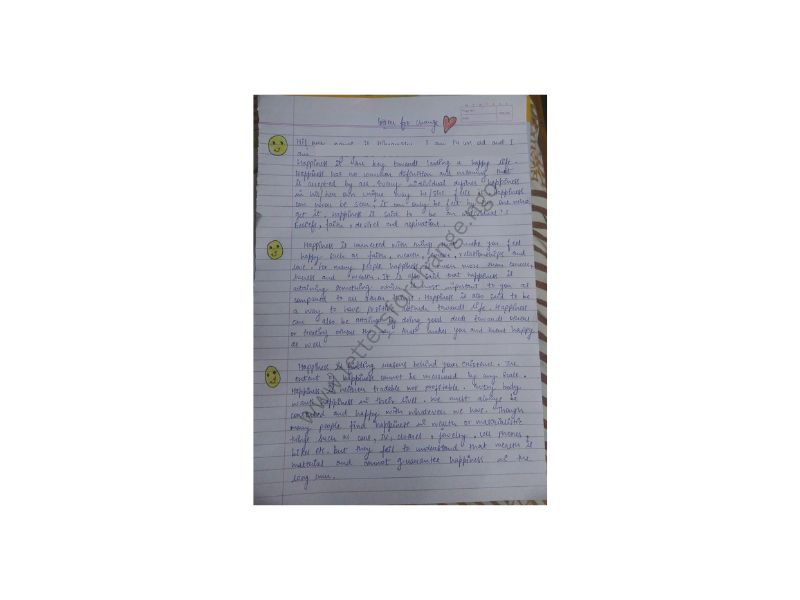 Letter for change
Hi! name is I am 14 yr old and I
am
Happiness is key towards leading a happy life.
Happiness has no common definition and meaning that
is accepted by all. Every individual defines happiness
in his/her own unique way he/she feels. Happiness
can never be seen, it can only be felt by one who
get it. Happiness is said to be an
Beliefs, faith, desires and aspirations.
Happiness is connected with things make you feel
happy such as faith, health, , relationships and
love. For many people happiness more than success,
and wealth. It is also said that happiness is
attaining something which is most important to you as
compared to all other . Happiness is also said to be
a way to have positive attitude towards life. Happiness
can also be attained by doing good deeds towards others
or treating others that makes you and them happy
as well.
Happiness is finding reasons behind your existence. The
extent of happiness cannot be measured by any scale.
Happiness is neither tradable nor profitable. Every body
wants happiness in their lives. We must always be
contented and happy with whatever we have. Though
many people find happiness in wealth or materialistic
things such as cars, , clothes, jewelry, cell phones,
bikes etc. but they fail to understand that wealth is
material and cannot guarantee happiness in the
long run.
www.lettersforchange.ngo